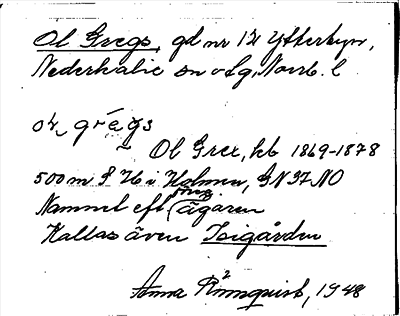 Ol Gregs, gd nr 12 Ytterbyn,
Nederkalix sn o lg, Norrb. l
o̱ḷ grēgs
Ol Grex, kb 1869-1878
500 m S H i Holmen, GN 37 NO
Namnet eft förre ägaren
Kallas även Isigården
Anna Rönnquist, 1948